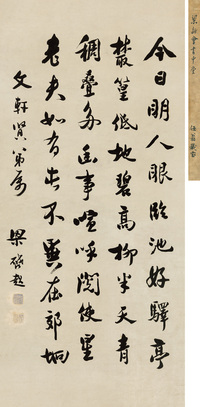 今日明人眼臨池好驛亭
叢篁低地碧高柳半天青
稠疊多幽事喧呼閱使星
老夫如有此不異在郊坰
文軒賢弟屬
梁啟超